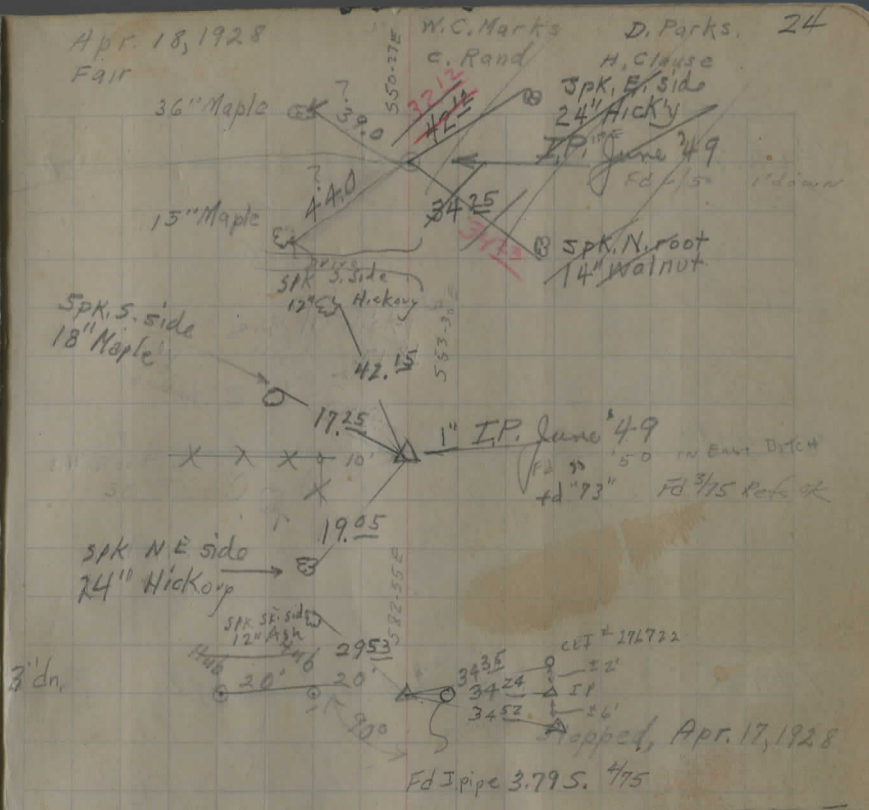 Apr. 18, 1928
Fair
W. C. Marks
C. Rand
D. Parks.
H. Clause
24
550-27E
36" Maple
?
39.0
3212
42 11
Spk. E. side
24" Hick'y
I.P. June '49
Fd
1' down
?
44.0
15" Maple
34 25
Spk. N. root
14" Walnut
Spk S. side
12" Hickory
Spk. S. side
18" Maple
42.15
17.25
1" I.P. June '49
Fd '50 in East Ditch
fd "73"
Fd 3/75 Refs ok
X X X 10'
X
19.05
Spk N E side
24" Hickory
582-55E
Spk SE. side
12" Ash
Hub Hub
29 53
3" dn.
20' 20'
90°
34 35
34 24
34 52
CEI # 276722
±2'
IP
±6'
Stopped, Apr. 17, 1928
Fd I.pipe 3.79 S. 4/75